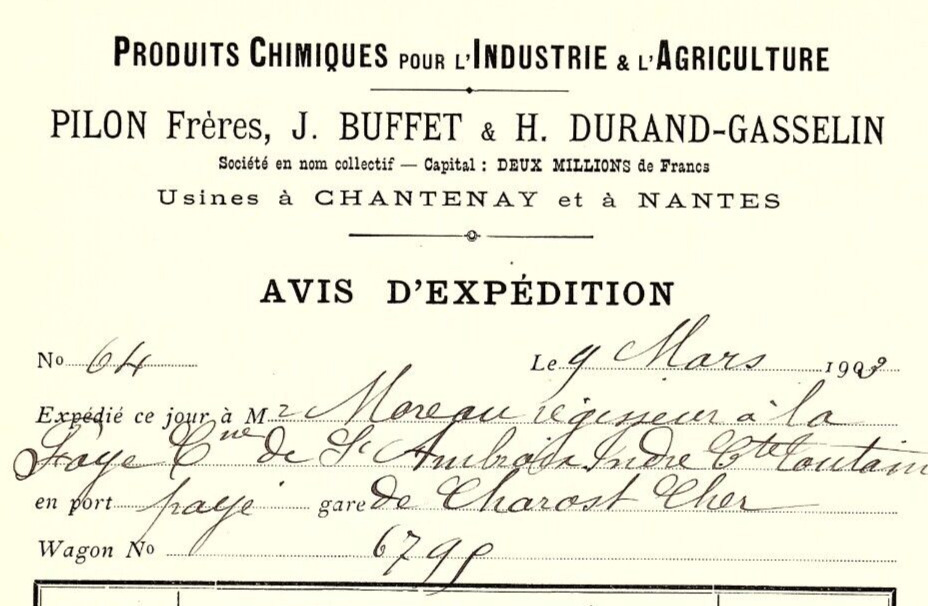 PRODUITS CHIMIQUES POUR L'INDUSTRIE & L'AGRICULTURE
PILON Frères, J. BUFFET & H. DURAND-GASSELIN
Société en nom collectif — Capital : DEUX MILLIONS de Francs
Usines à CHANTENAY et à NANTES
AVIS D'EXPÉDITION
No 64 Le 9 Mars 1903
Expédié ce jour à Mr Moreau régisseur à la
Faye Cne de St Ambroix Indre Cte
en port payé gare de Charost Cher
Wagon No 6799